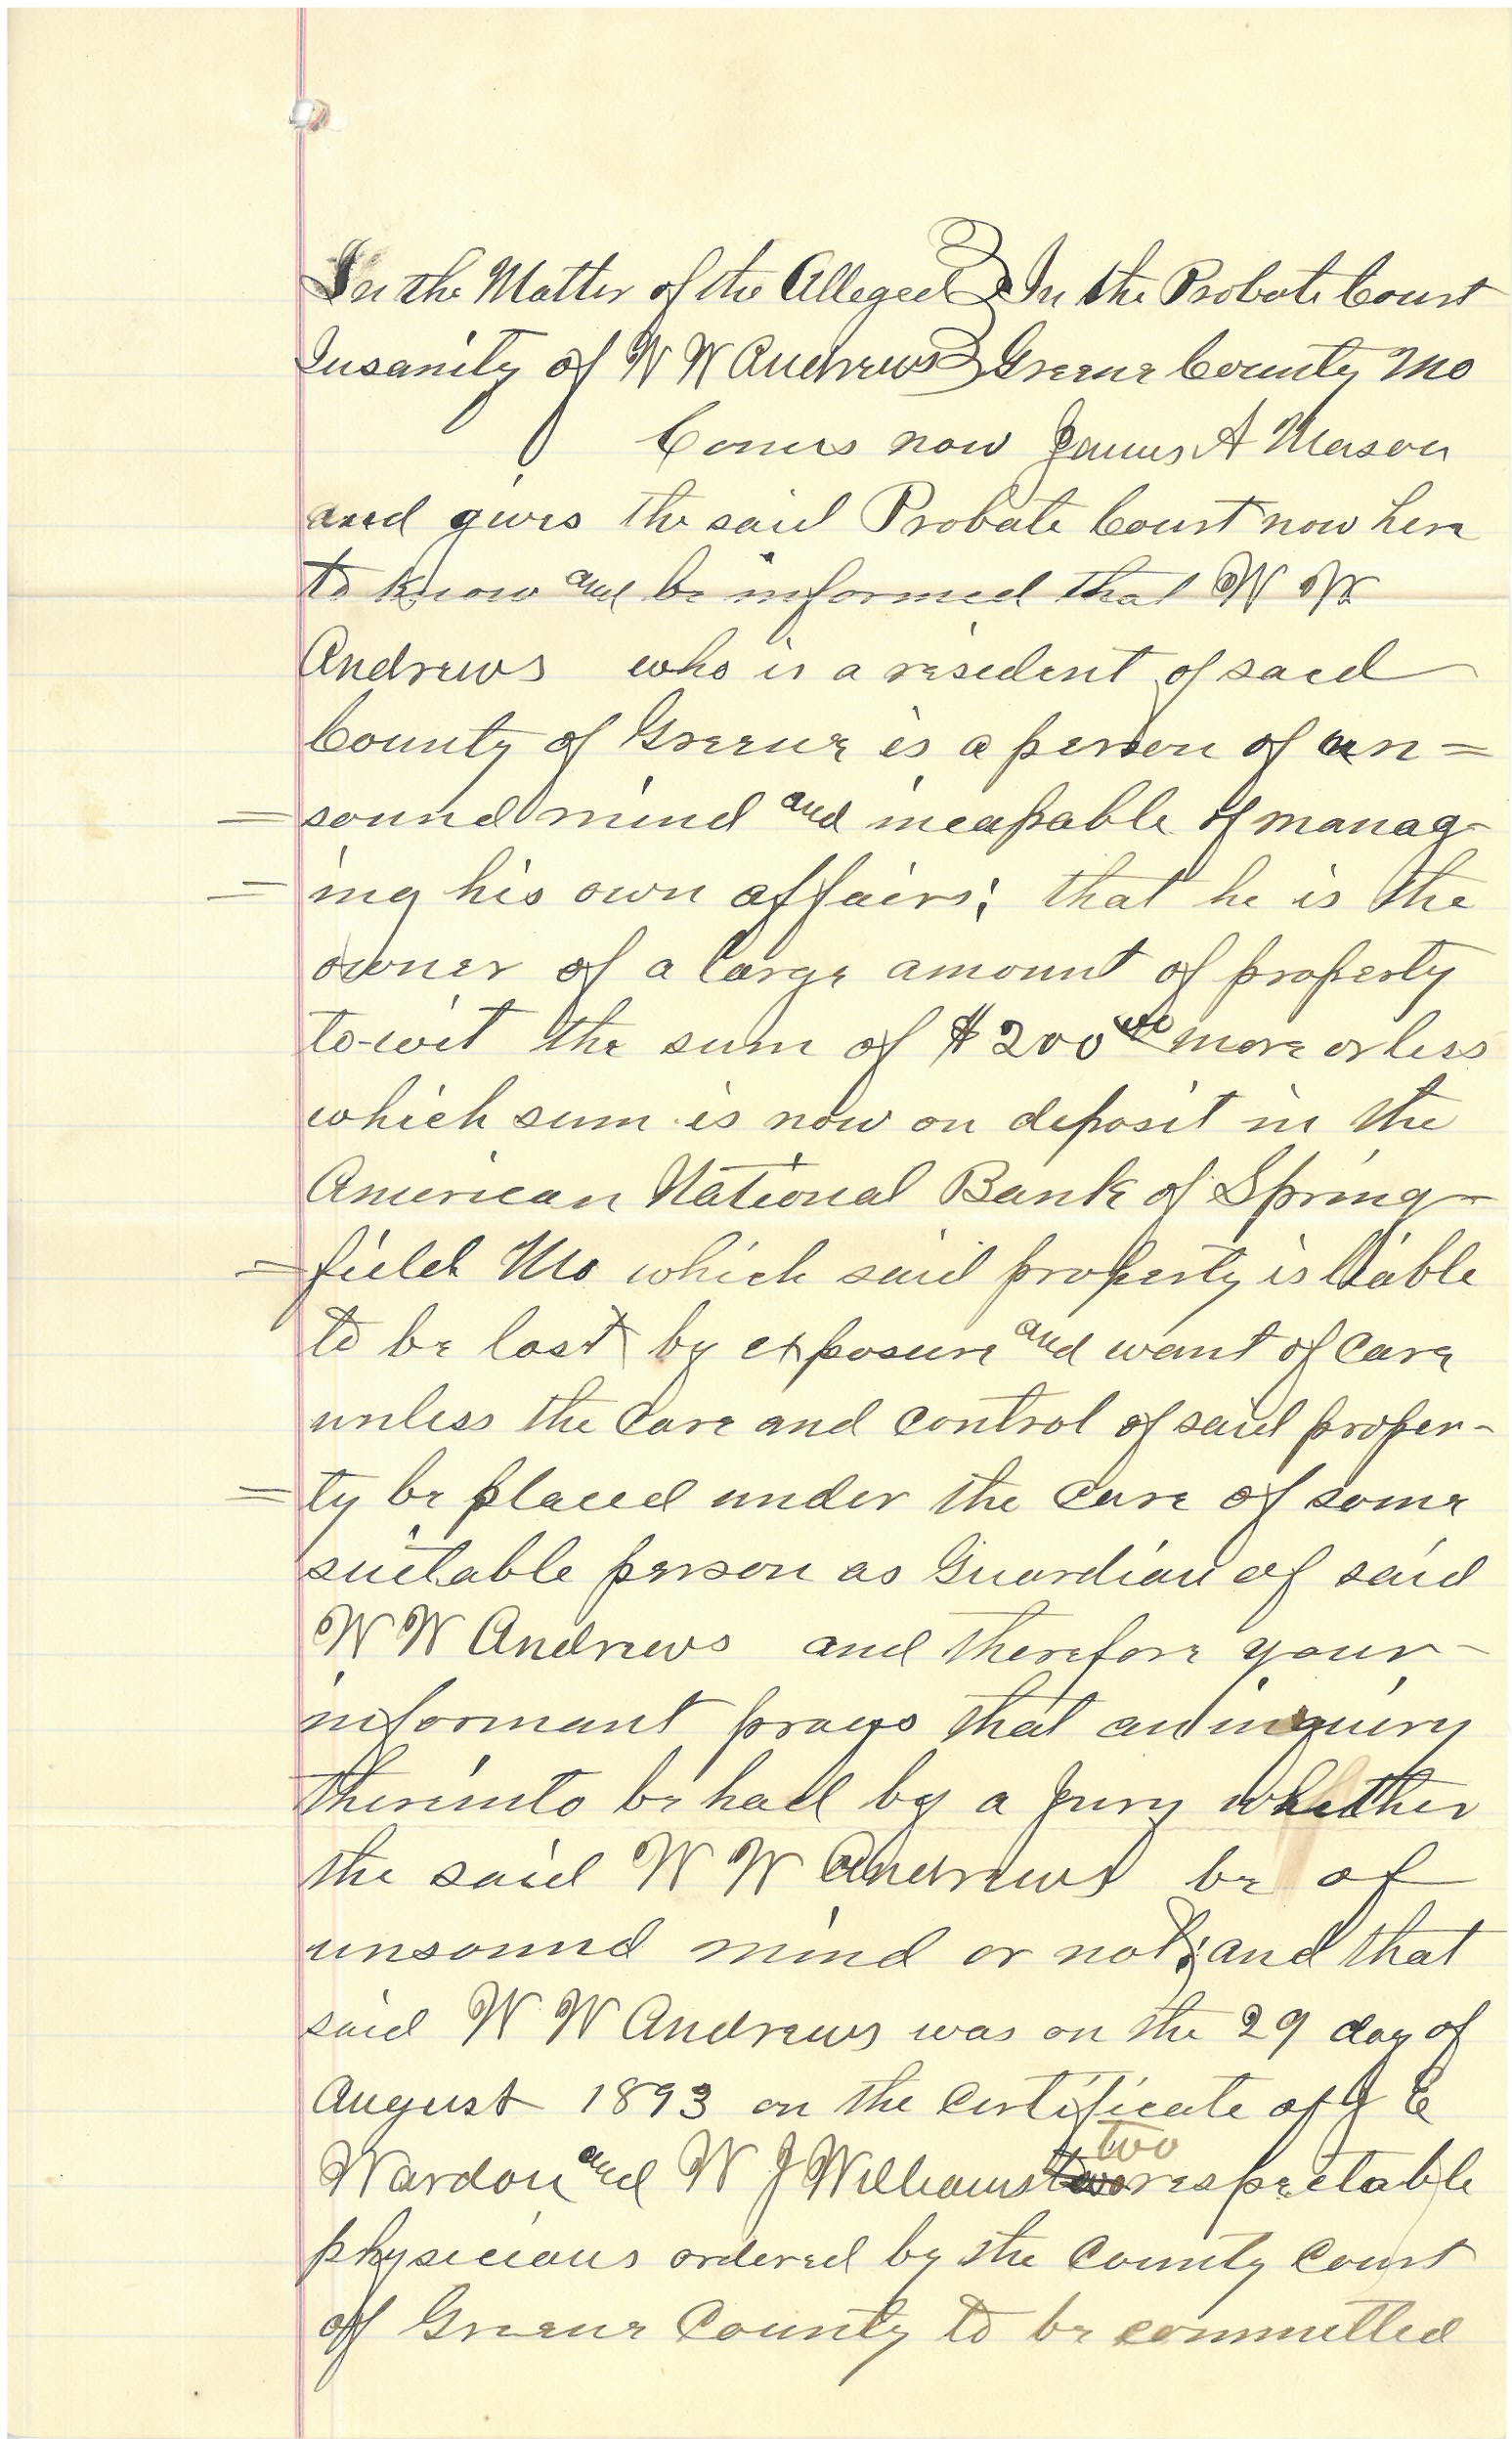 In the Matter of the Alleged } In the Probate Court
Insanity of W W Andrews } Greene County Mo
Comes now James A Mason
and gives the said Probate Court now here
to know and be informed that W W
Andrews who is a resident of said
County of Greene is a person of un=
=sound mind and incapable of manag-
=ing his own affairs; that he is the
owner of a large amount of property
to-wit the sum of $200 00 more or less
which sum is now on deposit in the
American National Bank of Spring-
=field Mo which said property is liable
to be lost by exposure and want of care
unless the care and control of said proper-
=ty be placed under the care of some
suitable person as Guardian of said
W W Andrews and therefore your
informant prays that an inquiry
thereinto be had by a Jury whether
the said W W Andrews be of
unsound mind or not; and that
said W W Andrews was on the 29 day of
August 1893 on the certificate of J E
two
Wardon and W J Williams two respectable
physicians ordered by the County Court
of Greene County to be committed